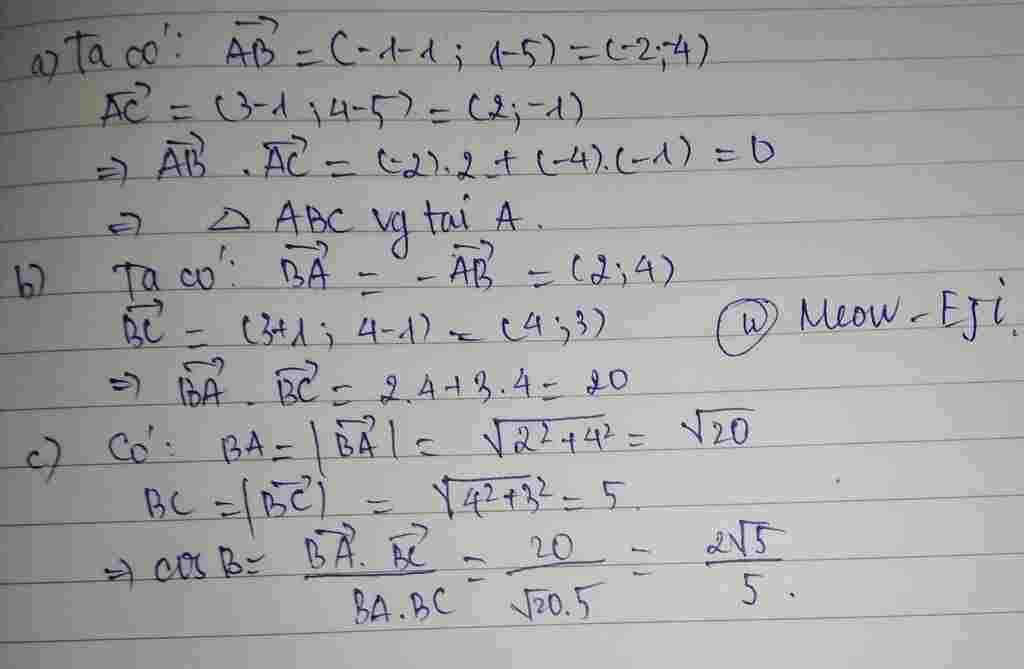 a) Ta có: $\overrightarrow{AB}$ = (-1-1; 1-5) = (-2;-4)
$\overrightarrow{AC}$ = (3-1; 4-5) = (2; -1)
⇒ $\overrightarrow{AB}$ . $\overrightarrow{AC}$ = (-2).2 + (-4).(-1) = 0
⇒ △ ABC vg tai A.
b) Ta có: $\overrightarrow{BA}$ = -$\overrightarrow{AB}$ = (2; 4)
$\overrightarrow{BC}$ = (3+1; 4-1) = (4; 3)
Ⓦ Meow-Eji.
⇒ $\overrightarrow{BA}$ . $\overrightarrow{BC}$ = 2.4+3.4 = 20
c) Có: BA = |$\overrightarrow{BA}$| = $\sqrt{2^2+4^2}$ = $\sqrt{20}$
BC = |$\overrightarrow{BC}$| = $\sqrt{4^2+3^2}$ = 5.
⇒ cos B = $\frac{\overrightarrow{BA}.\overrightarrow{BC}}{BA.BC}$ = $\frac{20}{\sqrt{20}.5}$ = $\frac{2\sqrt{5}}{5}$.